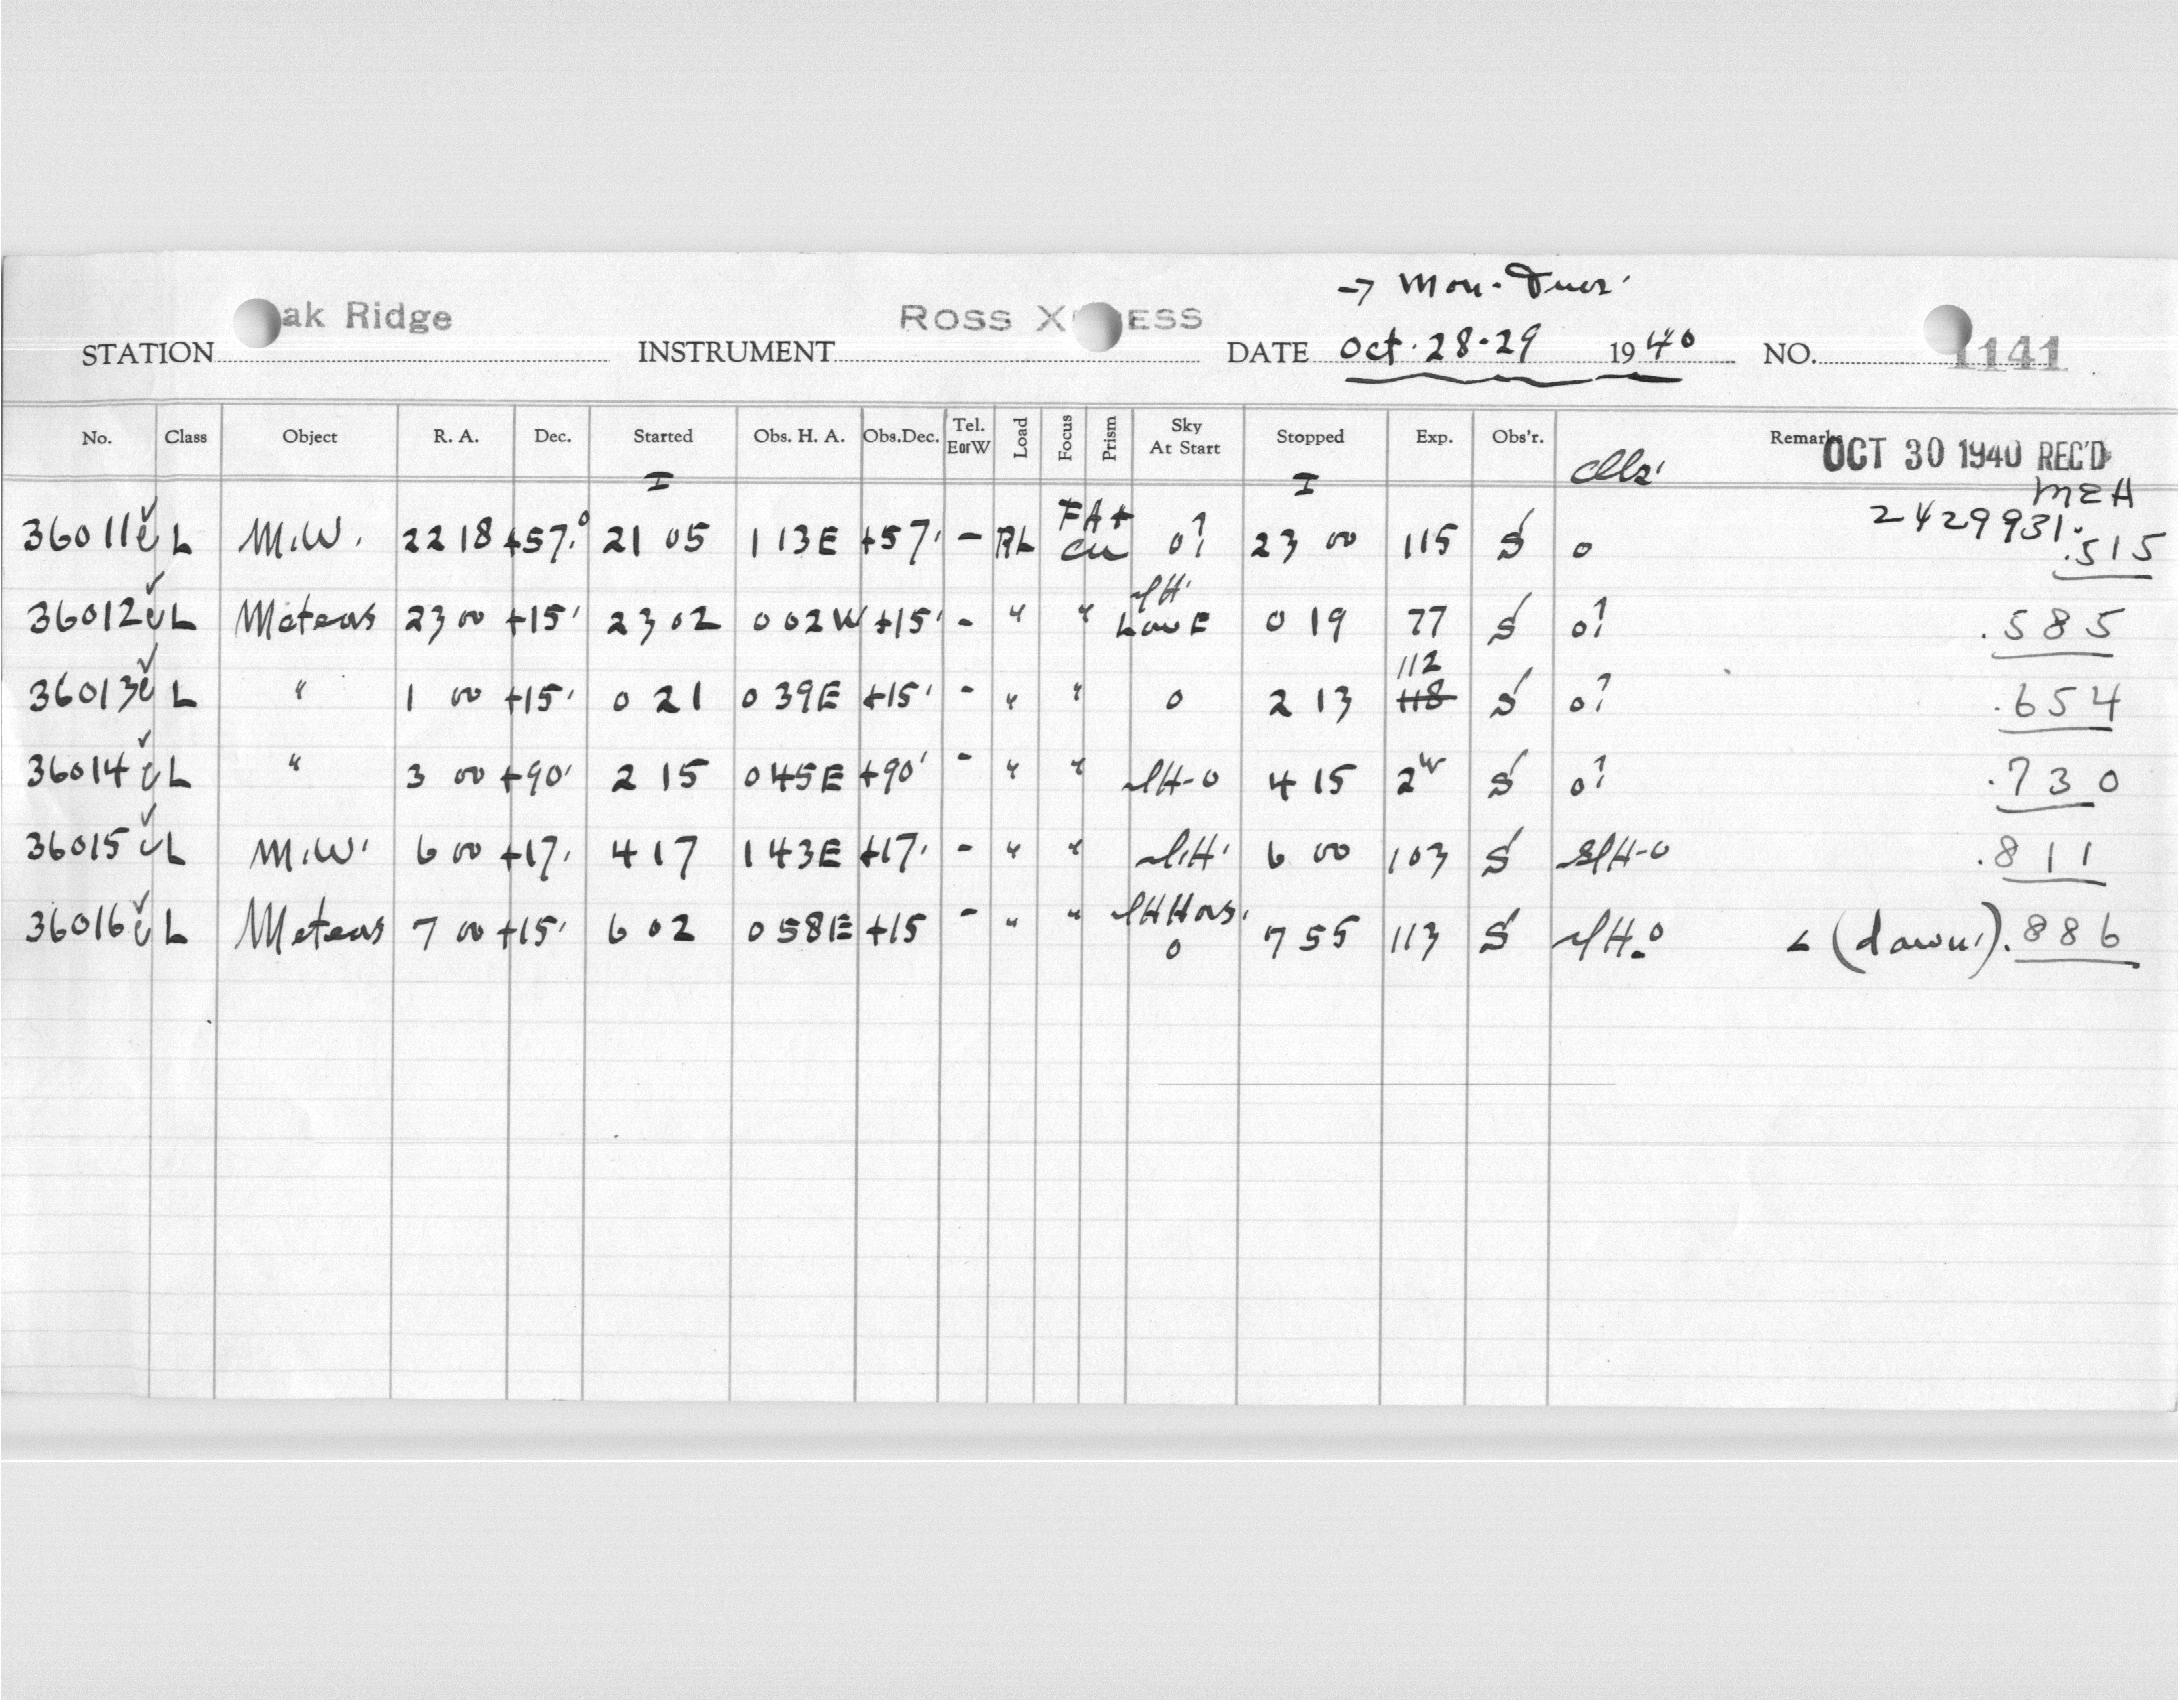 → Mon. Tues.
STATION Oak Ridge INSTRUMENT Ross X ESS DATE Oct. 28-29 1940 NO. 1141
No. Class Object R. A. Dec. Started Obs. H. A. Obs.Dec. Tel. E or W Load Focus Prism Sky At Start Stopped Exp. Obs'r. Remarks
OCT 30 1940 REC'D
I I MEH
2429931.
36011 L M.W. 22 18 +57.° 21 05 1 13E +57. - RL FA+ 0? 23 00 115 S 0 .515
36012 L Meteors 23 00 +15. 23 02 0 02W +15. - " " Low E 0 19 77 S 0? .585
36013 L " 1 00 +15. 0 21 0 39E +15. - " " 0 2 13 112 118 S 0? .654
36014 L " 3 00 +90. 2 15 0 45E +90. - " " H-0 4 15 2 S 0? .730
36015 L M.W. 6 00 +17. 4 17 1 43E +17. - " " H. 6 00 103 S H-0 .811
36016 L Meteors 7 00 +15. 6 02 0 58E +15 - " " 0 7 55 113 S H-0 < (dawn.) .886